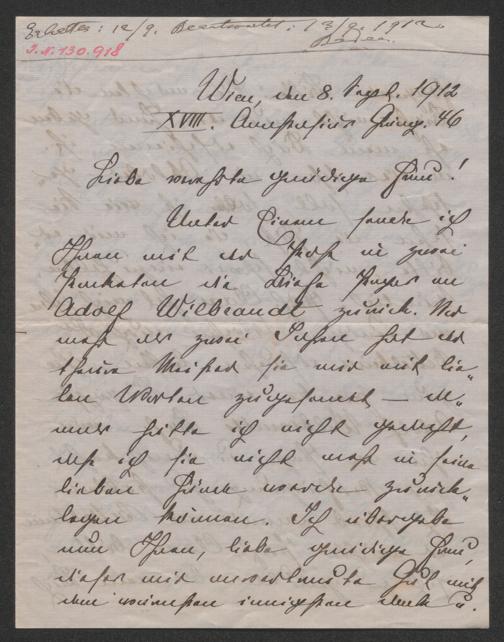 Erhalten: 12/9. Beantwortet: 13/9. 1912.
Baden.
I.N. 130.918
Wien, den 8. Sept. 1912
XVIII. Anastasius Grüng. 46
Liebe verehrte gnädige Frau!
Unter Einem sende ich
Ihnen mit der Post in zwei
Packeten die Briefe Ihres an
Adolf Wilbrandt zurück. Vor
mehr als zwei Jahren hat der
theure Meister sie mir mit lie-
ben Worten zugesandt — 
immer hätte ich nicht gedacht,
daß ich sie nicht mehr in seine
lieben Hände werde zurück-
legen können. Ich übergebe
nun Ihnen, liebe gnädige Frau,
dieses mir anvertraute Gut mit
dem wärmsten innigsten Dank u.